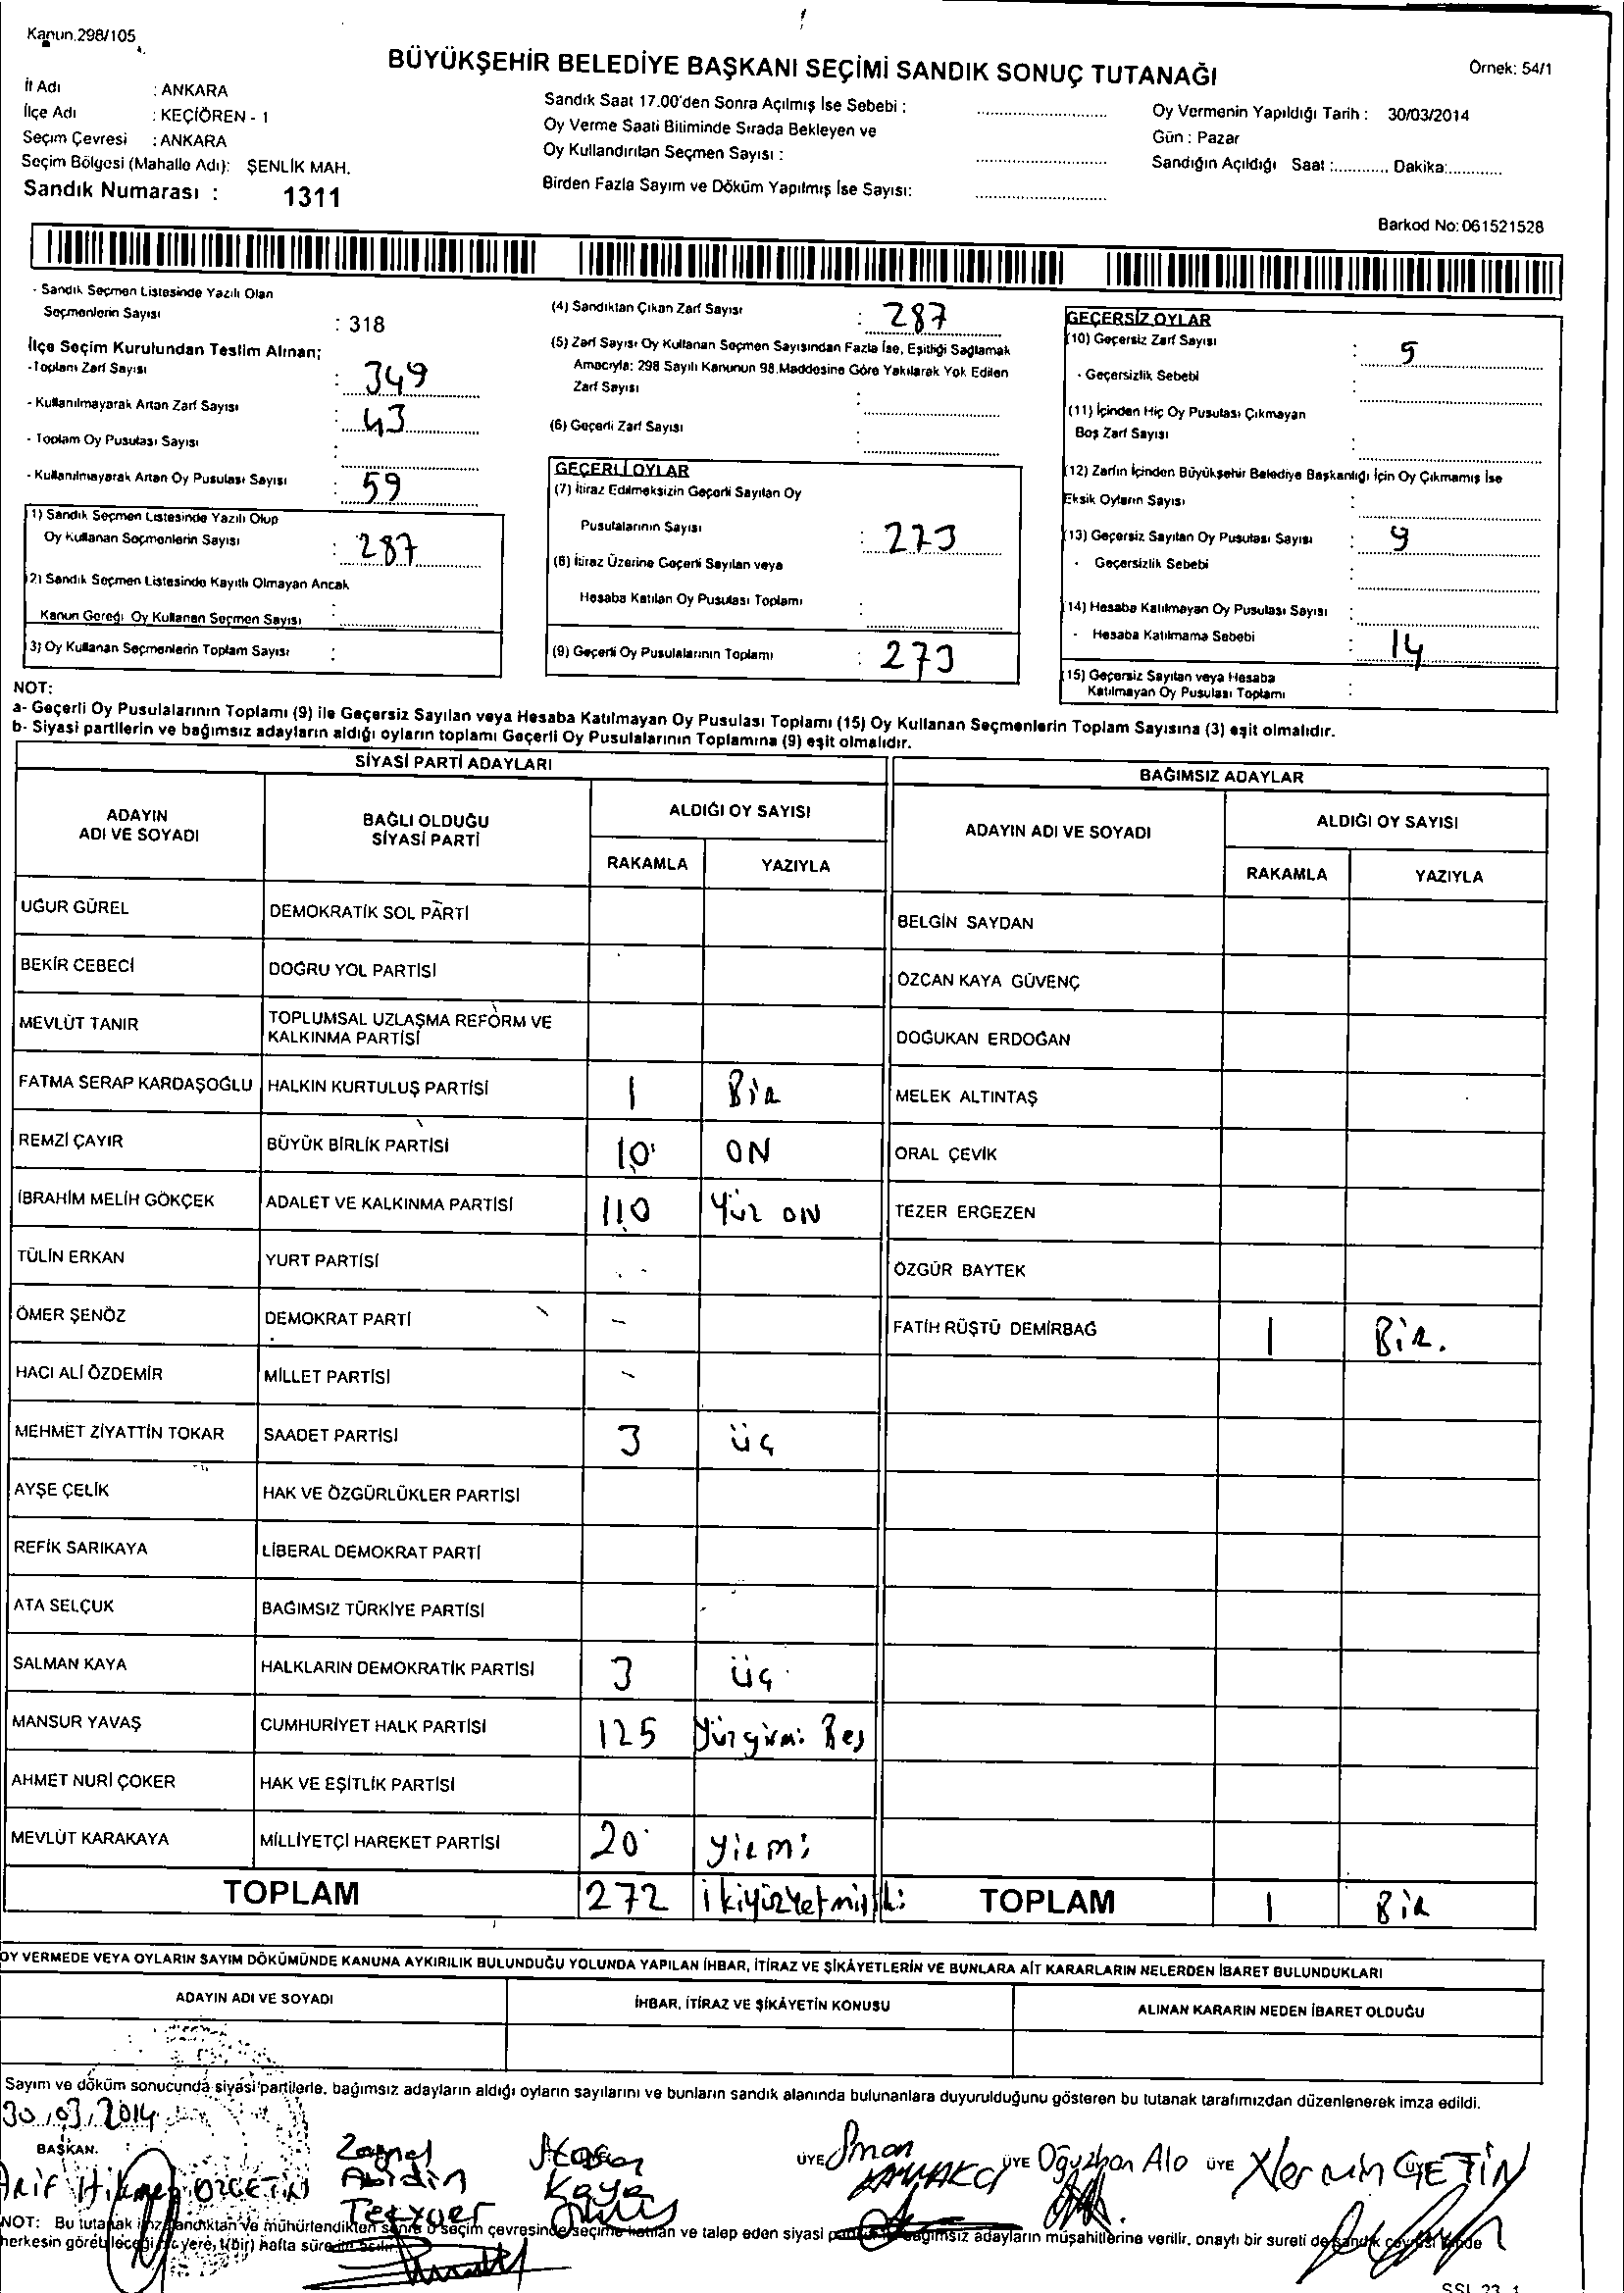 Kanun.298/105
BÜYÜKŞEHİR BELEDİYE BAŞKANI SEÇİMİ SANDIK SONUÇ TUTANAĞI
Örnek: 54/1
İl Adı : ANKARA
İlçe Adı : KEÇİÖREN - 1
Seçim Çevresi : ANKARA
Seçim Bölgesi (Mahalle Adı): ŞENLİK MAH.
Sandık Numarası : 1311
Sandık Saat 17.00'den Sonra Açılmış İse Sebebi :
Oy Verme Saati Bitiminde Sırada Bekleyen ve
Oy Kullandırılan Seçmen Sayısı :
Birden Fazla Sayım ve Döküm Yapılmış İse Sayısı:
Oy Vermenin Yapıldığı Tarih : 30/03/2014
Gün : Pazar
Sandığın Açıldığı Saat :............ Dakika:............
Barkod No: 061521528
- Sandık Seçmen Listesinde Yazılı Olan
Seçmenlerin Sayısı : 318
İlçe Seçim Kurulundan Teslim Alınan;
-Toplam Zarf Sayısı : 349
- Kullanılmayarak Artan Zarf Sayısı : 43
- Toplam Oy Pusulası Sayısı :
- Kullanılmayarak Artan Oy Pusulası Sayısı : 59
1) Sandık Seçmen Listesinde Yazılı Olup
Oy Kullanan Seçmenlerin Sayısı : 287
2) Sandık Seçmen Listesinde Kayıtlı Olmayan Ancak
Kanun Gereği Oy Kullanan Seçmen Sayısı :
3) Oy Kullanan Seçmenlerin Toplam Sayısı :
(4) Sandıktan Çıkan Zarf Sayısı : 287
(5) Zarf Sayısı Oy Kullanan Seçmen Sayısından Fazla İse, Eşitliği Sağlamak
Amacıyla: 298 Sayılı Kanunun 98.Maddesine Göre Yakılarak Yok Edilen
Zarf Sayısı :
(6) Geçerli Zarf Sayısı :
GEÇERLİ OYLAR
(7) İtiraz Edilmeksizin Geçerli Sayılan Oy
Pusulalarının Sayısı : 273
(8) İtiraz Üzerine Geçerli Sayılan veya
Hesaba Katılan Oy Pusulası Toplamı :
(9) Geçerli Oy Pusulalarının Toplamı : 273
GEÇERSİZ OYLAR
(10) Geçersiz Zarf Sayısı : 5
- Geçersizlik Sebebi :
(11) İçinden Hiç Oy Pusulası Çıkmayan
Boş Zarf Sayısı :
(12) Zarfın İçinden Büyükşehir Belediye Başkanlığı İçin Oy Çıkmamış İse
Eksik Oyların Sayısı :
(13) Geçersiz Sayılan Oy Pusulası Sayısı : 9
- Geçersizlik Sebebi :
(14) Hesaba Katılmayan Oy Pusulası Sayısı :
- Hesaba Katılmama Sebebi : 14
15) Geçersiz Sayılan veya Hesaba
Katılmayan Oy Pusulası Toplamı :
NOT:
a- Geçerli Oy Pusulalarının Toplamı (9) ile Geçersiz Sayılan veya Hesaba Katılmayan Oy Pusulası Toplamı (15) Oy Kullanan Seçmenlerin Toplam Sayısına (3) eşit olmalıdır.
b- Siyasi partilerin ve bağımsız adayların aldığı oyların toplamı Geçerli Oy Pusulalarının Toplamına (9) eşit olmalıdır.
SİYASİ PARTİ ADAYLARI
ADAYIN ADI VE SOYADI
BAĞLI OLDUĞU SİYASİ PARTİ
ALDIĞI OY SAYISI
RAKAMLA YAZIYLA
UĞUR GÜREL DEMOKRATİK SOL PARTİ
BEKİR CEBECİ DOĞRU YOL PARTİSİ
MEVLÜT TANIR TOPLUMSAL UZLAŞMA REFORM VE
KALKINMA PARTİSİ
FATMA SERAP KARDAŞOĞLU HALKIN KURTULUŞ PARTİSİ 1 BİR
REMZİ ÇAYIR BÜYÜK BİRLİK PARTİSİ 10 ON
İBRAHİM MELİH GÖKÇEK ADALET VE KALKINMA PARTİSİ 110 Yüz ON
TÜLİN ERKAN YURT PARTİSİ
ÖMER ŞENÖZ DEMOKRAT PARTİ -
HACI ALİ ÖZDEMİR MİLLET PARTİSİ -
MEHMET ZİYATTİN TOKAR SAADET PARTİSİ 3 üç
AYŞE ÇELİK HAK VE ÖZGÜRLÜKLER PARTİSİ
REFİK SARIKAYA LİBERAL DEMOKRAT PARTİ
ATA SELÇUK BAĞIMSIZ TÜRKİYE PARTİSİ
SALMAN KAYA HALKLARIN DEMOKRATİK PARTİSİ 3 üç
MANSUR YAVAŞ CUMHURİYET HALK PARTİSİ 125 Yüzyirmi Beş
AHMET NURİ ÇOKER HAK VE EŞİTLİK PARTİSİ
MEVLÜT KARAKAYA MİLLİYETÇİ HAREKET PARTİSİ 20 yirmi
TOPLAM 272 ikiyüzyetmişiki
BAĞIMSIZ ADAYLAR
ADAYIN ADI VE SOYADI
ALDIĞI OY SAYISI
RAKAMLA YAZIYLA
BELGİN SAYDAN
ÖZCAN KAYA GÜVENÇ
DOĞUKAN ERDOĞAN
MELEK ALTINTAŞ
ORAL ÇEVİK
TEZER ERGEZEN
ÖZGÜR BAYTEK
FATİH RÜŞTÜ DEMİRBAĞ 1 BİR.
TOPLAM 1 BİR
OY VERMEDE VEYA OYLARIN SAYIM DÖKÜMÜNDE KANUNA AYKIRILIK BULUNDUĞU YOLUNDA YAPILAN İHBAR, İTİRAZ VE ŞİKÂYETLERİN VE BUNLARA AİT KARARLARIN NELERDEN İBARET BULUNDUKLARI
ADAYIN ADI VE SOYADI
İHBAR, İTİRAZ VE ŞİKÂYETİN KONUSU
ALINAN KARARIN NEDEN İBARET OLDUĞU
Sayım ve döküm sonucunda siyasi partilerle, bağımsız adayların aldığı oyların sayılarını ve bunların sandık alanında bulunanlara duyurulduğunu gösteren bu tutanak tarafımızdan düzenlenerek imza edildi.
30.03.2014
BAŞKAN
Arif Hikmet ÖZÇETİN
Zeynel
Abidin
Hasan
Kaya
ÜYE
ÜYE Oğuzhan Alo
ÜYE Nermin ÇETİN
NOT: Bu tutanak imzalandıktan ve mühürlendikten sonra o seçim çevresinde seçime katılan ve talep eden siyasi bağımsız adayların müşahitlerine verilir, onaylı bir sureti de sandık çevresi içinde
herkesin görebileceği bir yere, 1(bir) hafta süre ile asılır.